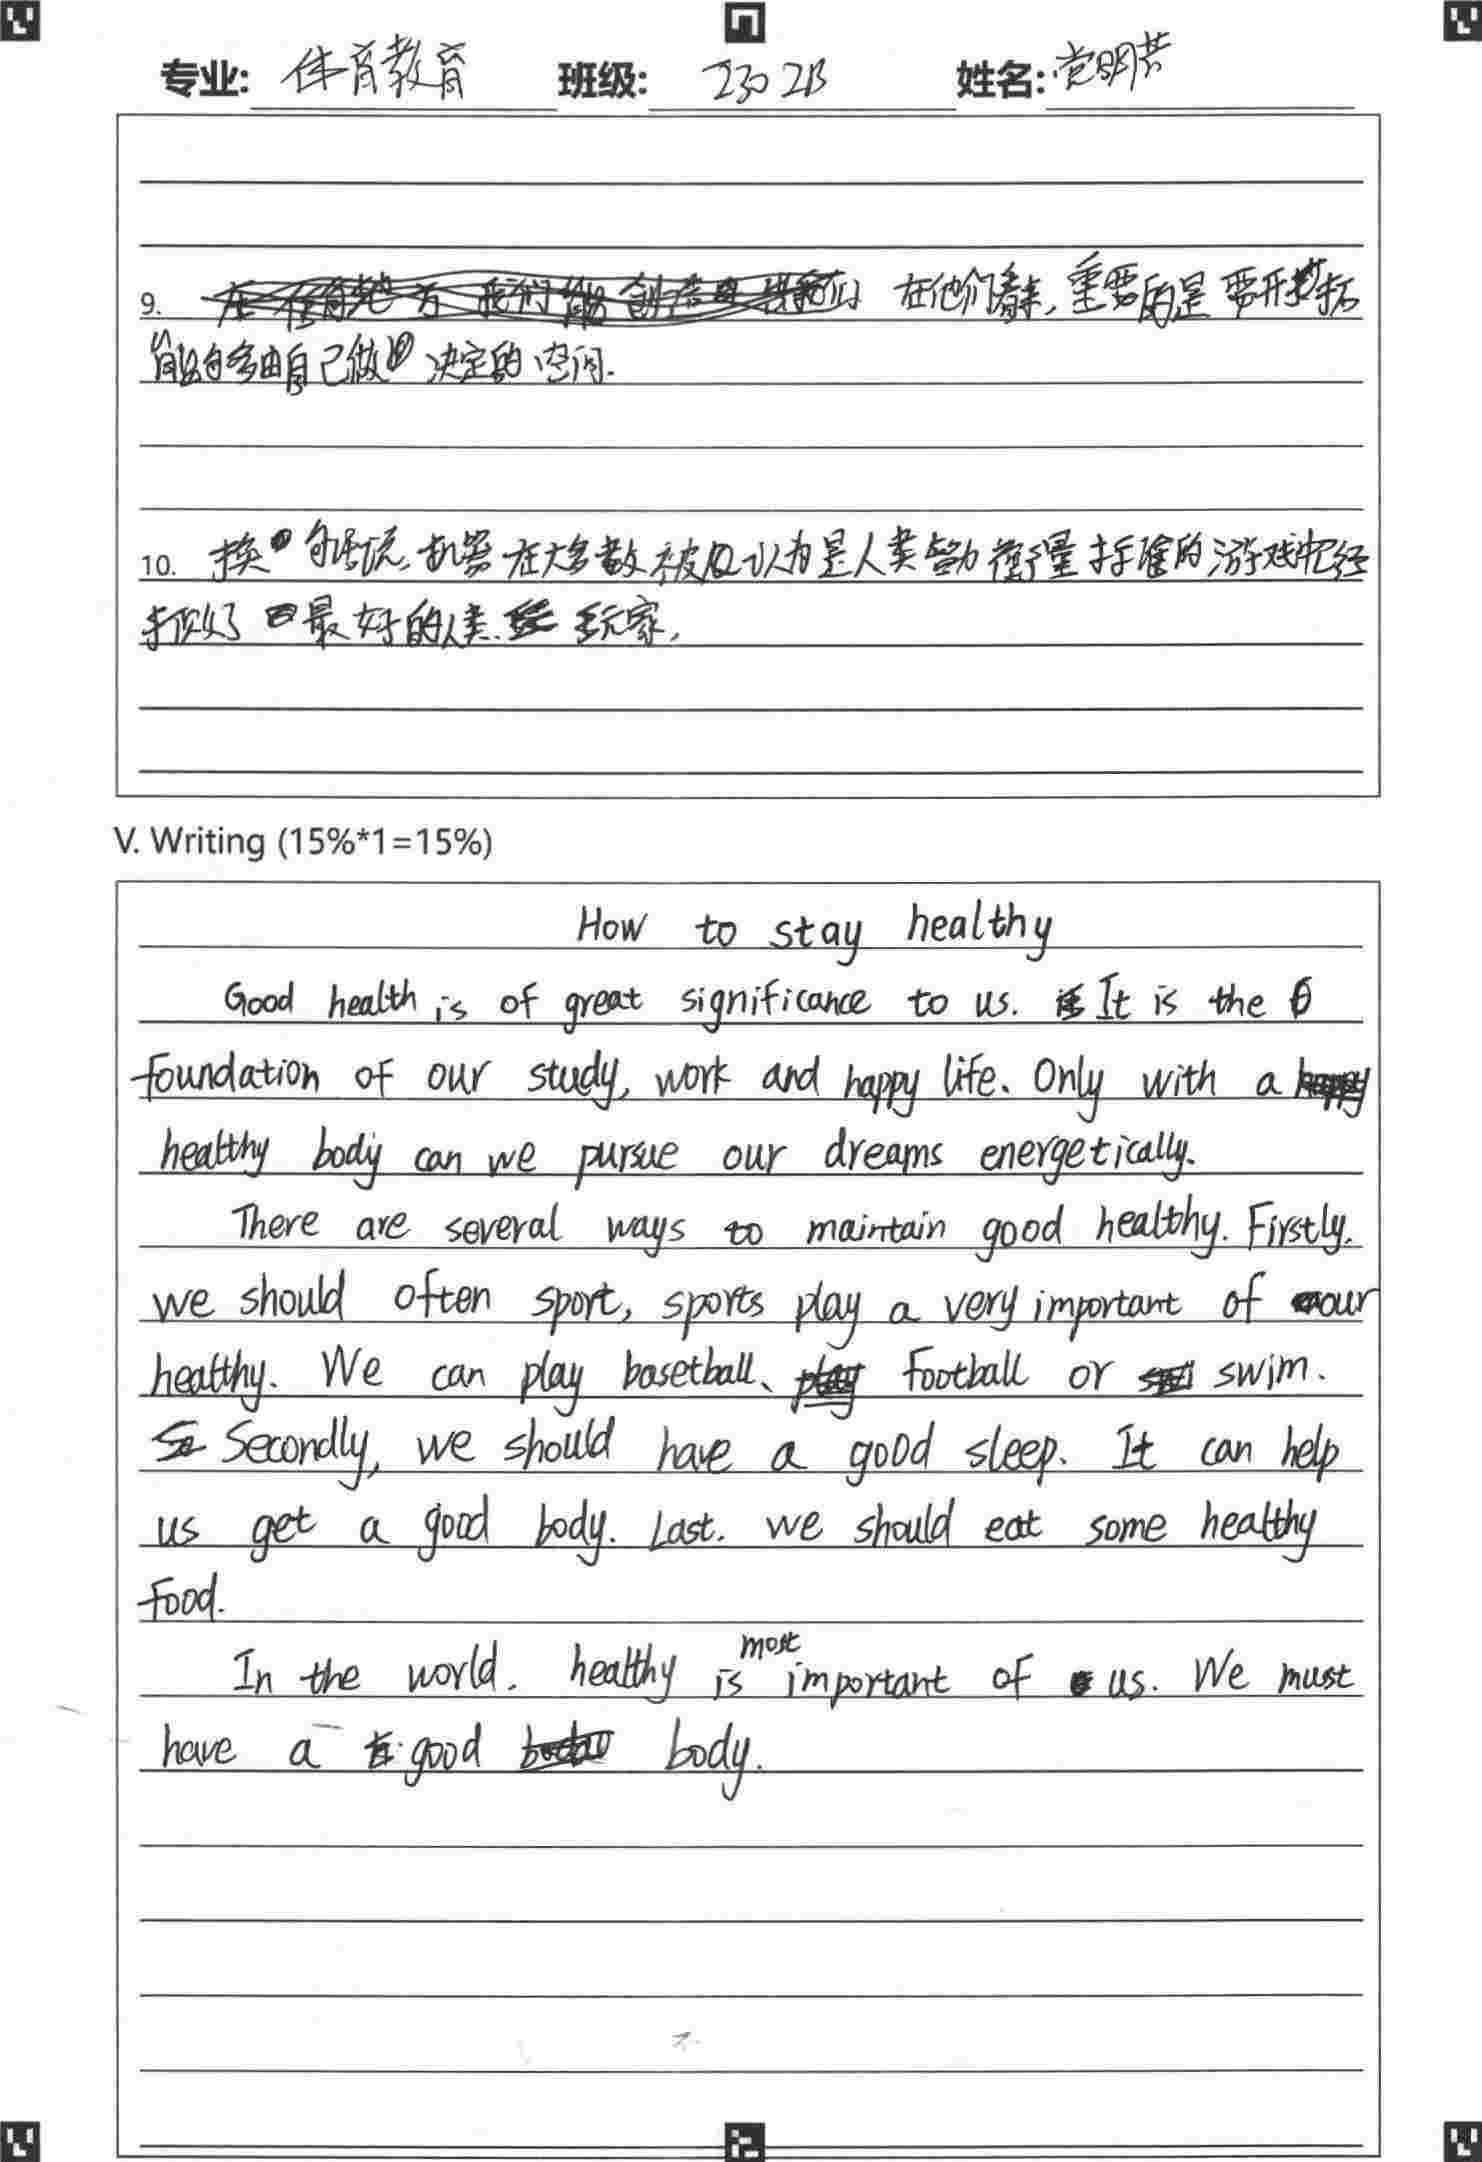 专业: 体育教育 班级: 2302B 姓名: 党明
9. 在他们看来,重要的是要开拓
能够多由自己做决定的空间.
10. 换句话说,机器在大多数被认为是人类智力衡量标准的游戏中已经
打败了最好的人类玩家,
V. Writing (15%*1=15%)
How to stay healthy
Good health is of great significance to us. It is the
foundation of our study, work and happy life. Only with a
healthy body can we pursue our dreams energetically.
There are several ways to maintain good healthy. Firstly.
we should often sport, sports play a very important of our
healthy. We can play basetball、 football or swim.
Secondly, we should have a good sleep. It can help
us get a good body. Last. we should eat some healthy
food.
In the world. healthy is most important of us. We must
have a good body.